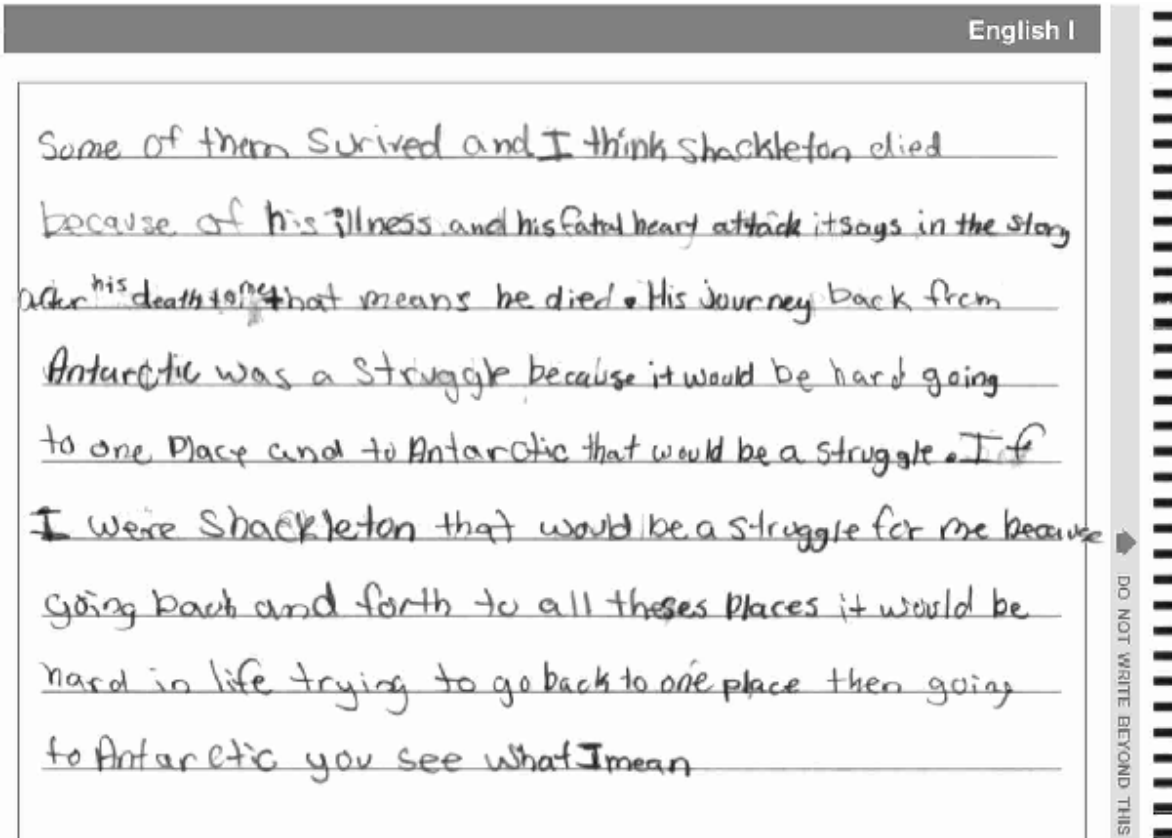 English I
Some of them Surived and I think shackleton died
because of his illness and his fatal heart attack it says in the story
after his death to me that means he died. His journey back from
Antarctic was a struggle because it would be hard going
to one Place and to Antarctic that would be a struggle. If
I were Shackleton that would be a struggle for me because
going back and forth to all theses places it would be
hard in life trying to go back to one place then going
to Antarctic you see what I mean
DO NOT WRITE BEYOND THIS